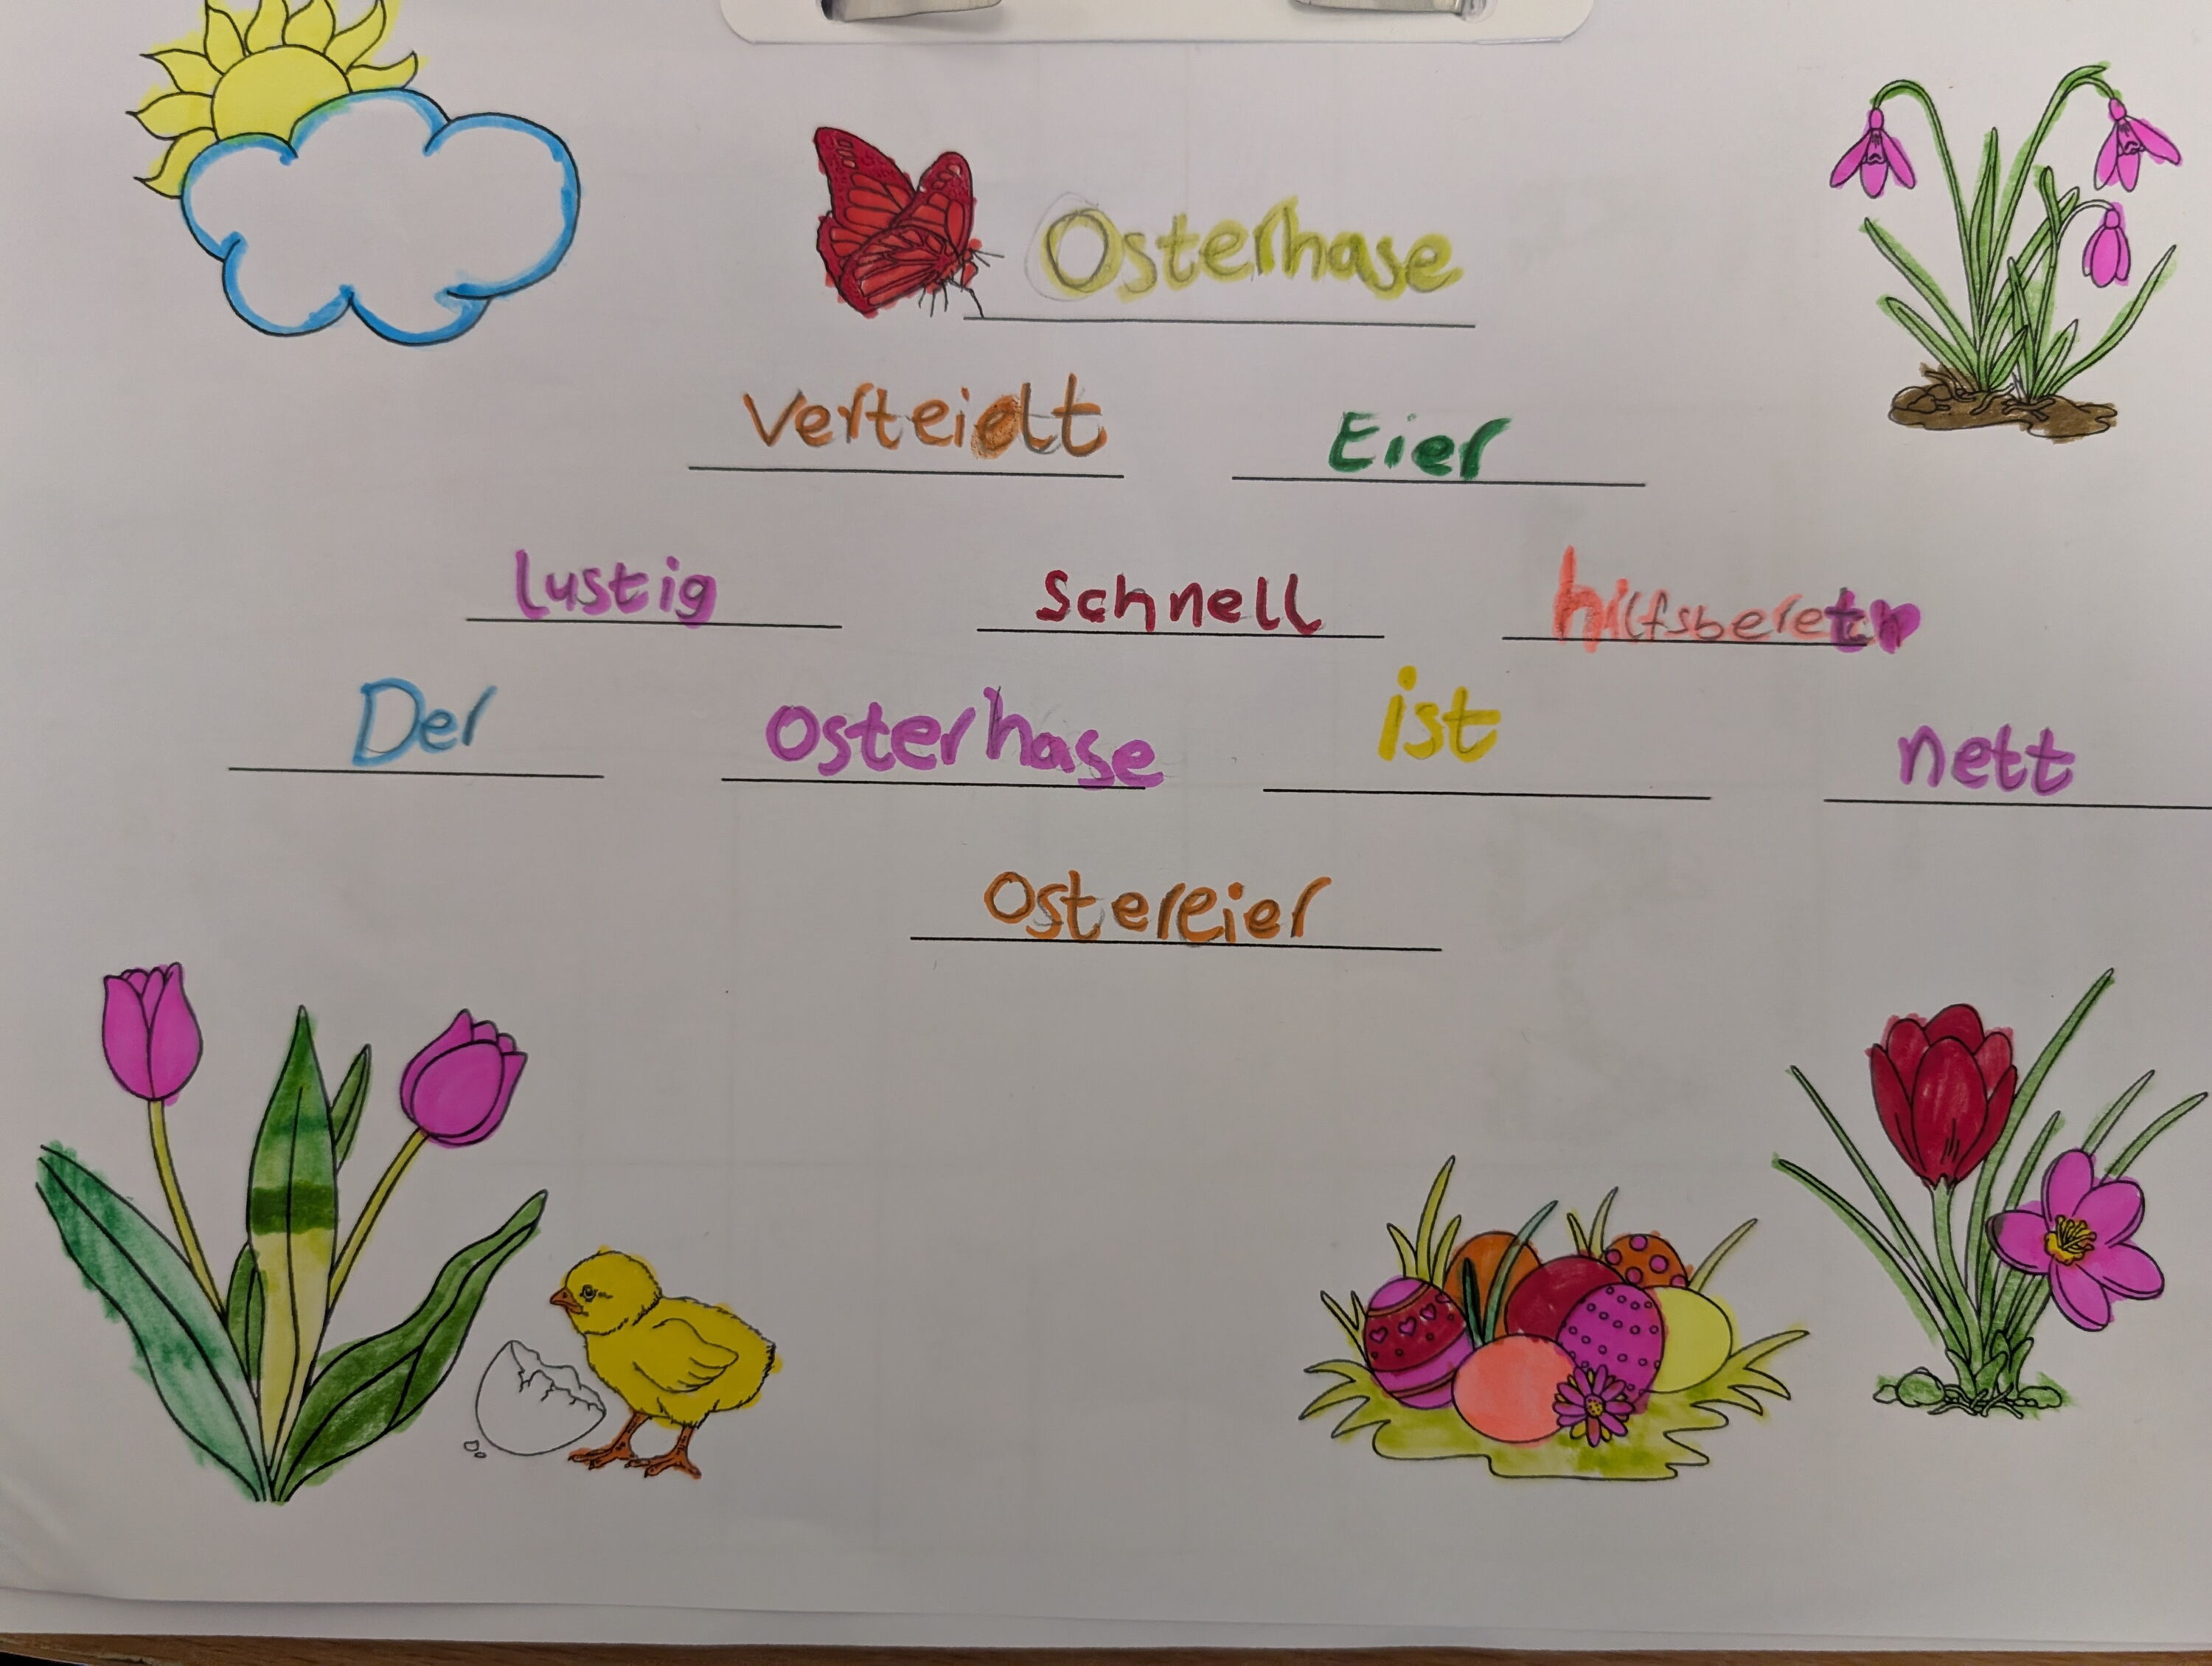 Osterhase
Verteielt Eier
lustig Schnell hilfsbereit
Der Osterhase ist nett
Ostereier